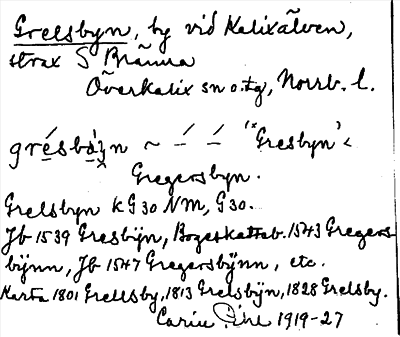 Grelsbyn, by vid Kalixälven,
strax S Bränna
Överkalix sn o. tg, Norrb. l.
grésbàyn ~ ⸝ ⸝ "Gresbyn" <
Gregersbyn.
Grelsbyn k G 30 NM, G 30.
Jb 1539 Gresbÿn, 1543 Gregers
bÿnn, Jb 1547 Gregersbÿnn, etc.
Karta 1801 Grellsby, 1813 Grelsbÿn, 1828 Grelsby.
Carin Pihl 1919-27